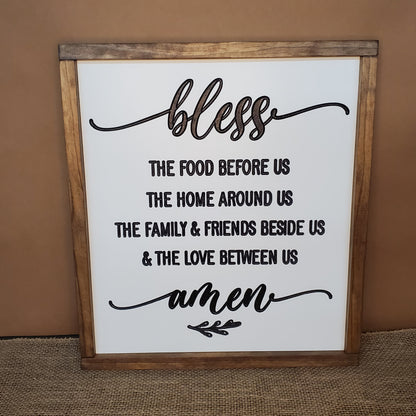 bless
THE FOOD BEFORE US
THE HOME AROUND US
THE FAMILY & FRIENDS BESIDE US
& THE LOVE BETWEEN US
amen